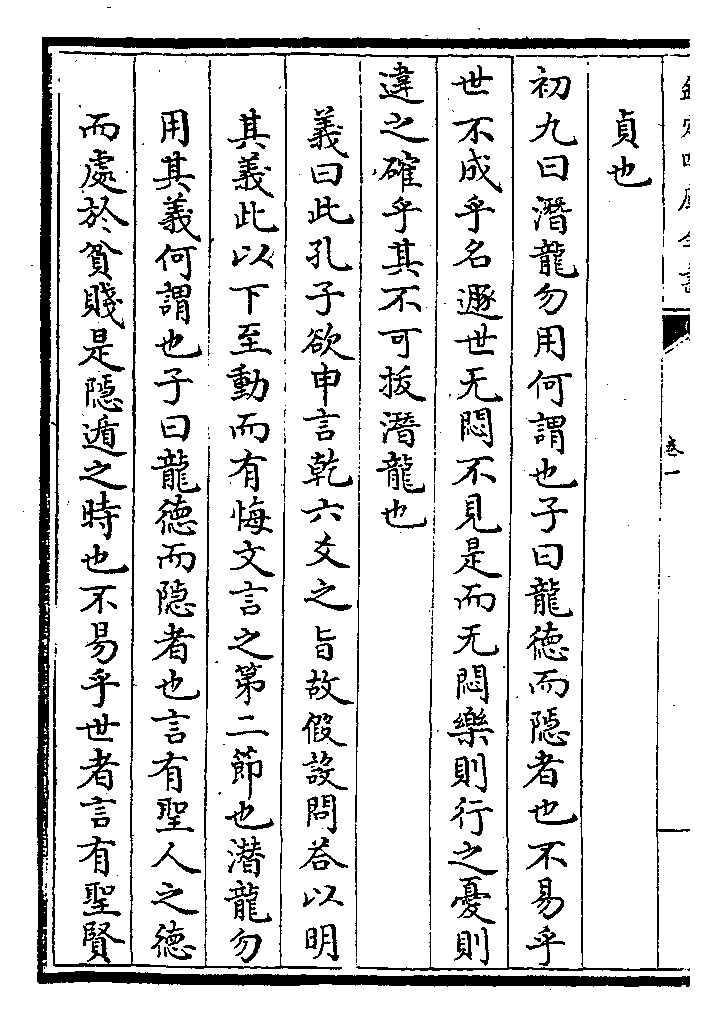 欽定四庫全書
卷一
貞也
初九曰潛龍勿用何謂也子曰龍德而隱者也不易乎
世不成乎名遯世无悶不見是而无悶樂則行之憂則
違之確乎其不可拔潛龍也
義曰此孔子欲申言乾六爻之旨故假設問荅以明
其義此以下至動而有悔文言之第二節也潛龍勿
用其義何謂也子曰龍德而隱者也言有聖人之德
而處於貧賤是隱遁之時也不易乎世者言有聖賢